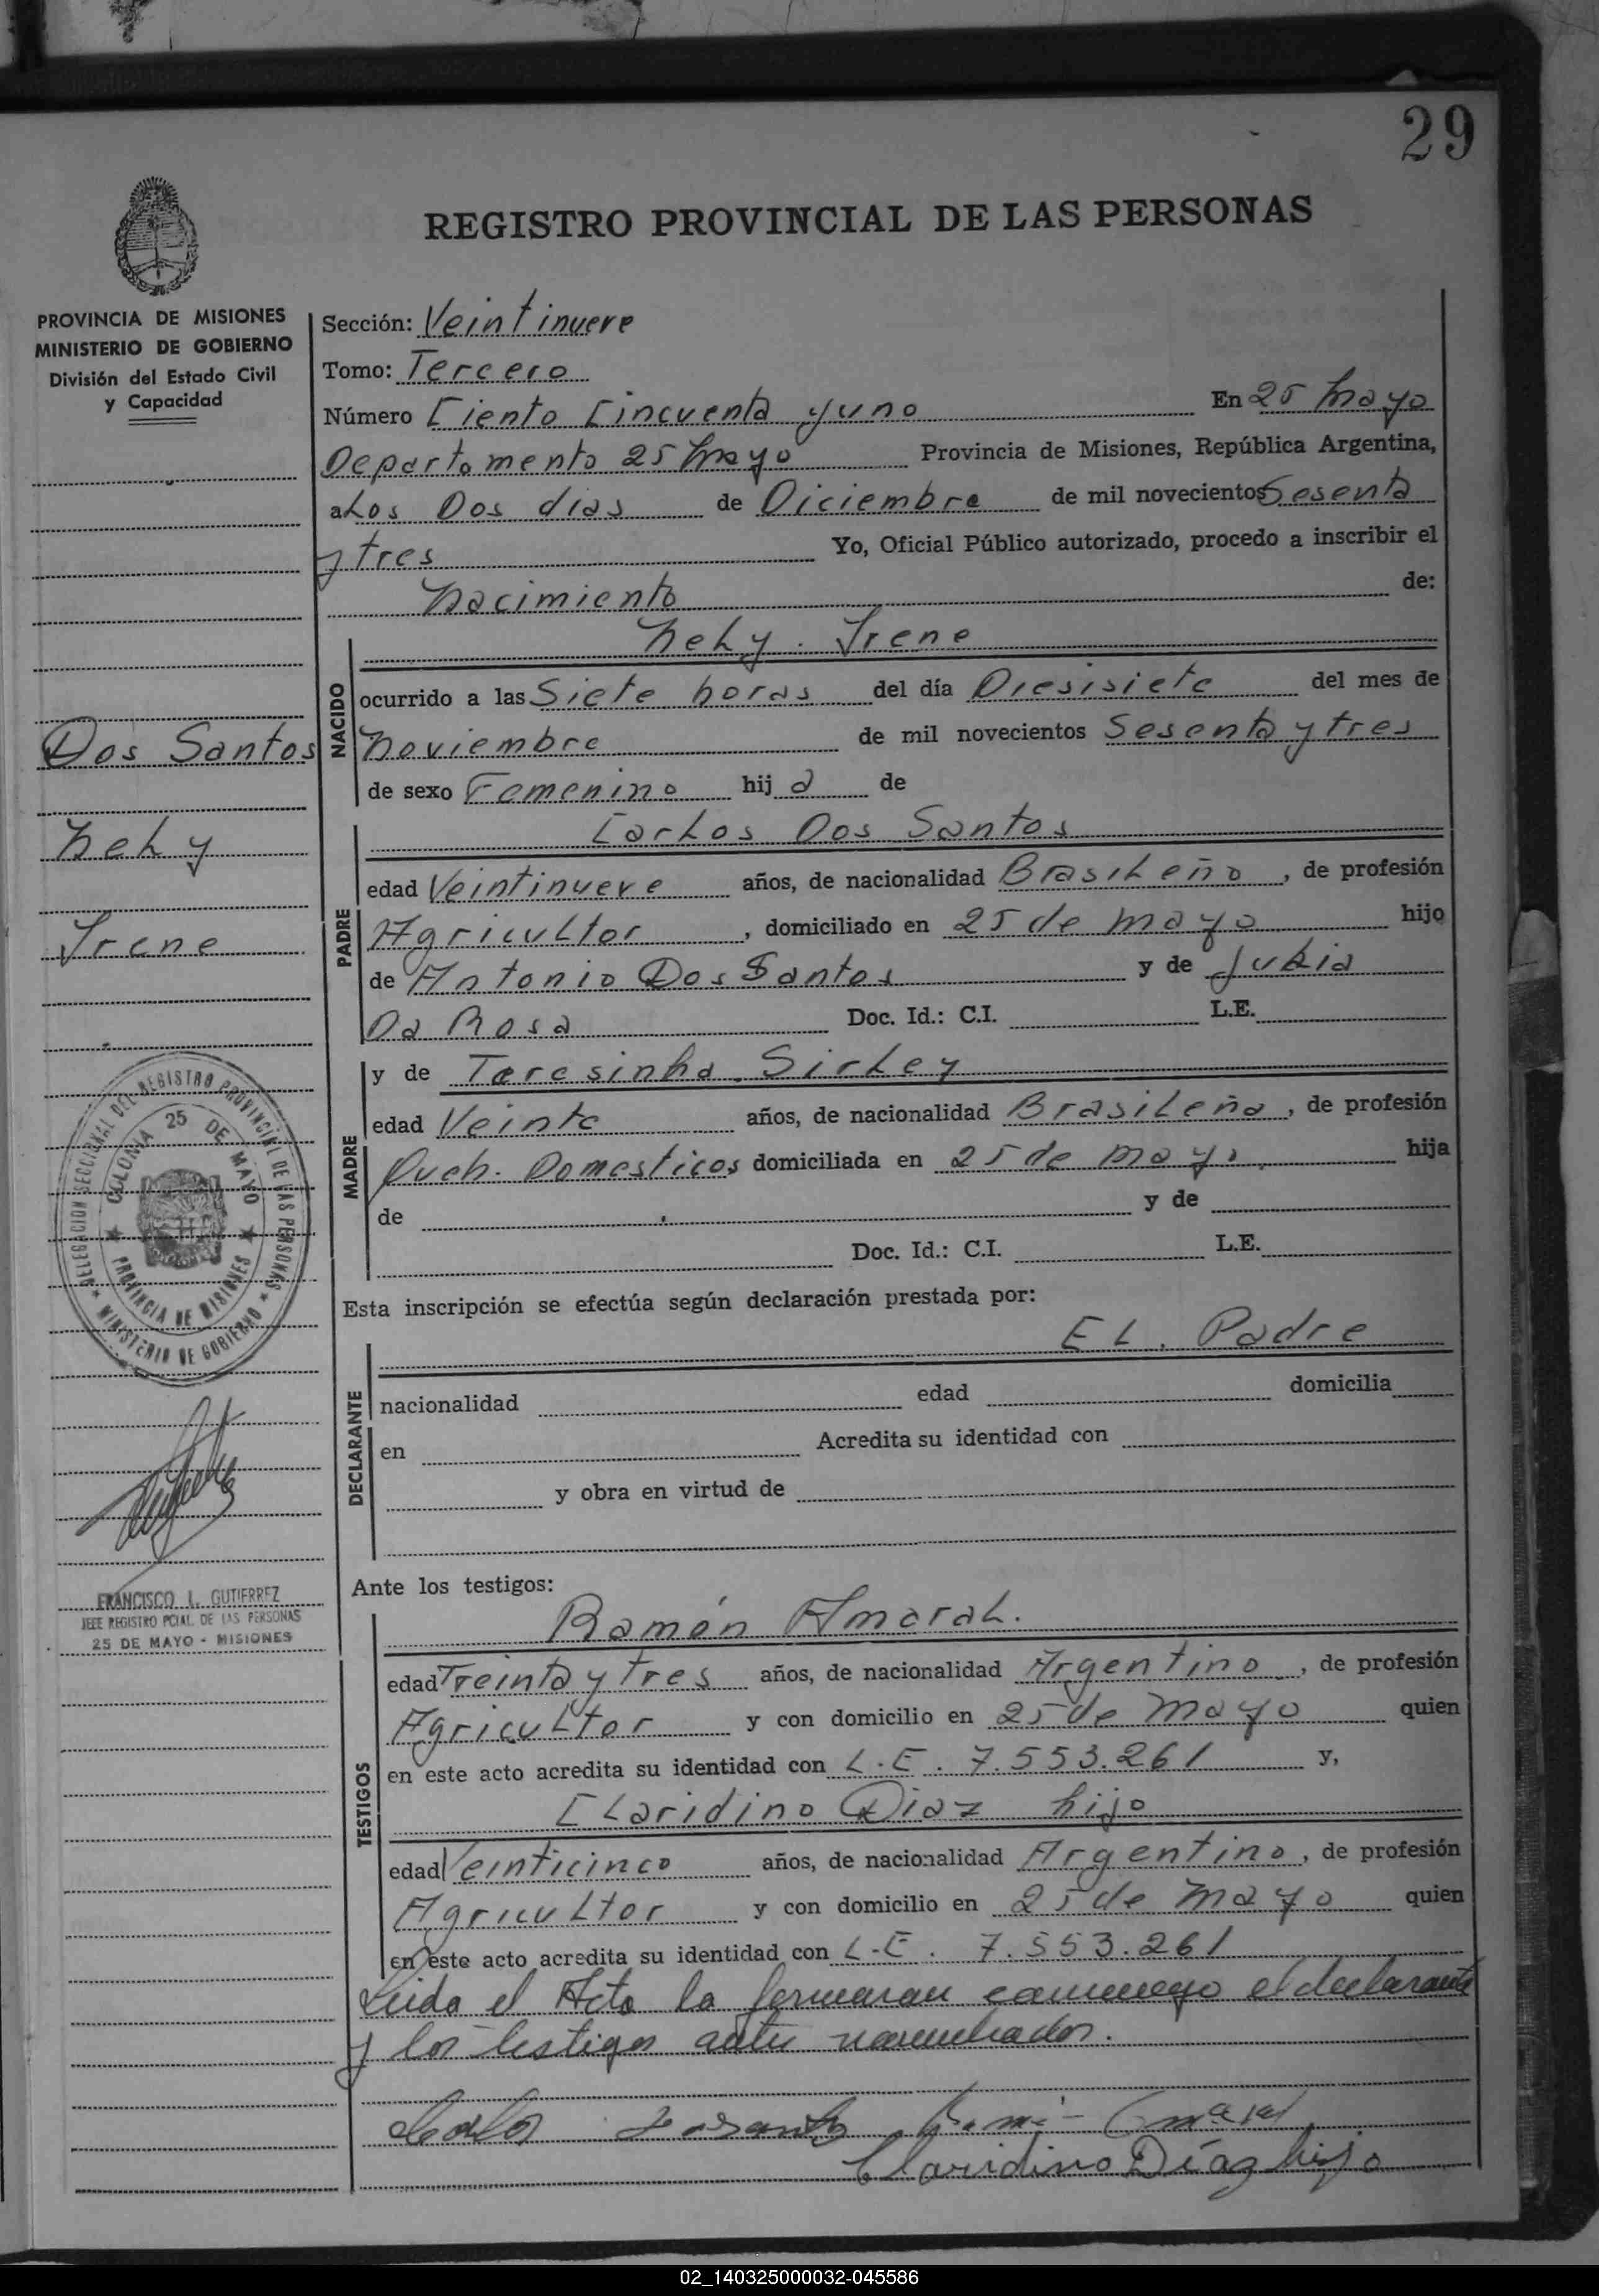 29
REGISTRO PROVINCIAL DE LAS PERSONAS
PROVINCIA DE MISIONES
MINISTERIO DE GOBIERNO
División del Estado Civil
y Capacidad
Sección: Veintinueve
Tomo: Tercero
Número Ciento Cincuenta y uno En 25 Mayo
Departamento 25 Mayo Provincia de Misiones, República Argentina,
a Los Dos dias de Diciembre de mil novecientos Sesenta
y tres Yo, Oficial Público autorizado, procedo a inscribir el
Nacimiento de:
NACIDO
NeLy. Irene
ocurrido a las Siete horas del día Diesisiete del mes de
Noviembre de mil novecientos Sesenta y tres
de sexo Femenino hij a de
Dos Santos
NeLy
Irene
PADRE
CarLos Dos Santos
edad Veintinueve años, de nacionalidad BrasiLeño, de profesión
AgricuLtor, domiciliado en 25 de Mayo hijo
de Antonio Dos Santos y de JuLia
Da Rosa Doc. Id.: C.I. L.E.
MADRE
y de Teresinha SirLey
edad Veinte años, de nacionalidad BrasiLeña, de profesión
Queh. Domesticos domiciliada en 25 de Mayo hija
de y de
Doc. Id.: C.I. L.E.
DELEGACION SECCIONAL DEL REGISTRO PROVINCIAL DE LAS PERSONAS
COLONIA 25 DE MAYO
PROVINCIA DE MISIONES
MINISTERIO DE GOBIERNO
Esta inscripción se efectúa según declaración prestada por:
DECLARANTE
EL. Padre
nacionalidad edad domicilia
en Acredita su identidad con
y obra en virtud de
FRANCISCO L. GUTIERREZ
JEFE REGISTRO PCIAL. DE LAS PERSONAS
25 DE MAYO - MISIONES
Ante los testigos:
TESTIGOS
Ramón AmaraL.
edad Treinta y tres años, de nacionalidad Argentino, de profesión
AgricuLtor y con domicilio en 25 de Mayo quien
en este acto acredita su identidad con L.E. 7.553.261 y,
CLaridino Diaz hijo
edad Veinticinco años, de nacionalidad Argentino, de profesión
AgricuLtor y con domicilio en 25 de Mayo quien
en este acto acredita su identidad con L.E. 7.553.261
Leida el Acta la firmaran conmigo el declarante
y los testigos antes nombrados.
Claridino Díaz hijo
02_140325000032-045586